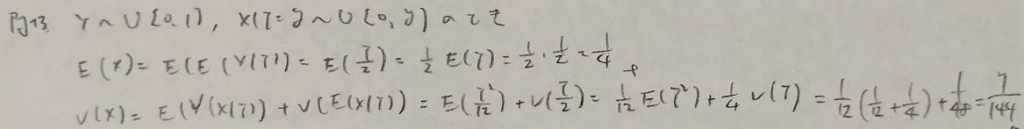 Y ~ U(0,1), X|Y=y ~ U(0,y) 에서
E(X) = E(E(X|Y)) = E(Y/2) = 1/2 E(Y) = 1/2 · 1/2 = 1/4
V(X) = E(V(X|Y)) + V(E(X|Y)) = E(Y²/12) + V(Y/2) = 1/12 E(Y²) + 1/4 V(Y) = 1/12 (1/12 + 1/4) + 1/48 = 7/144